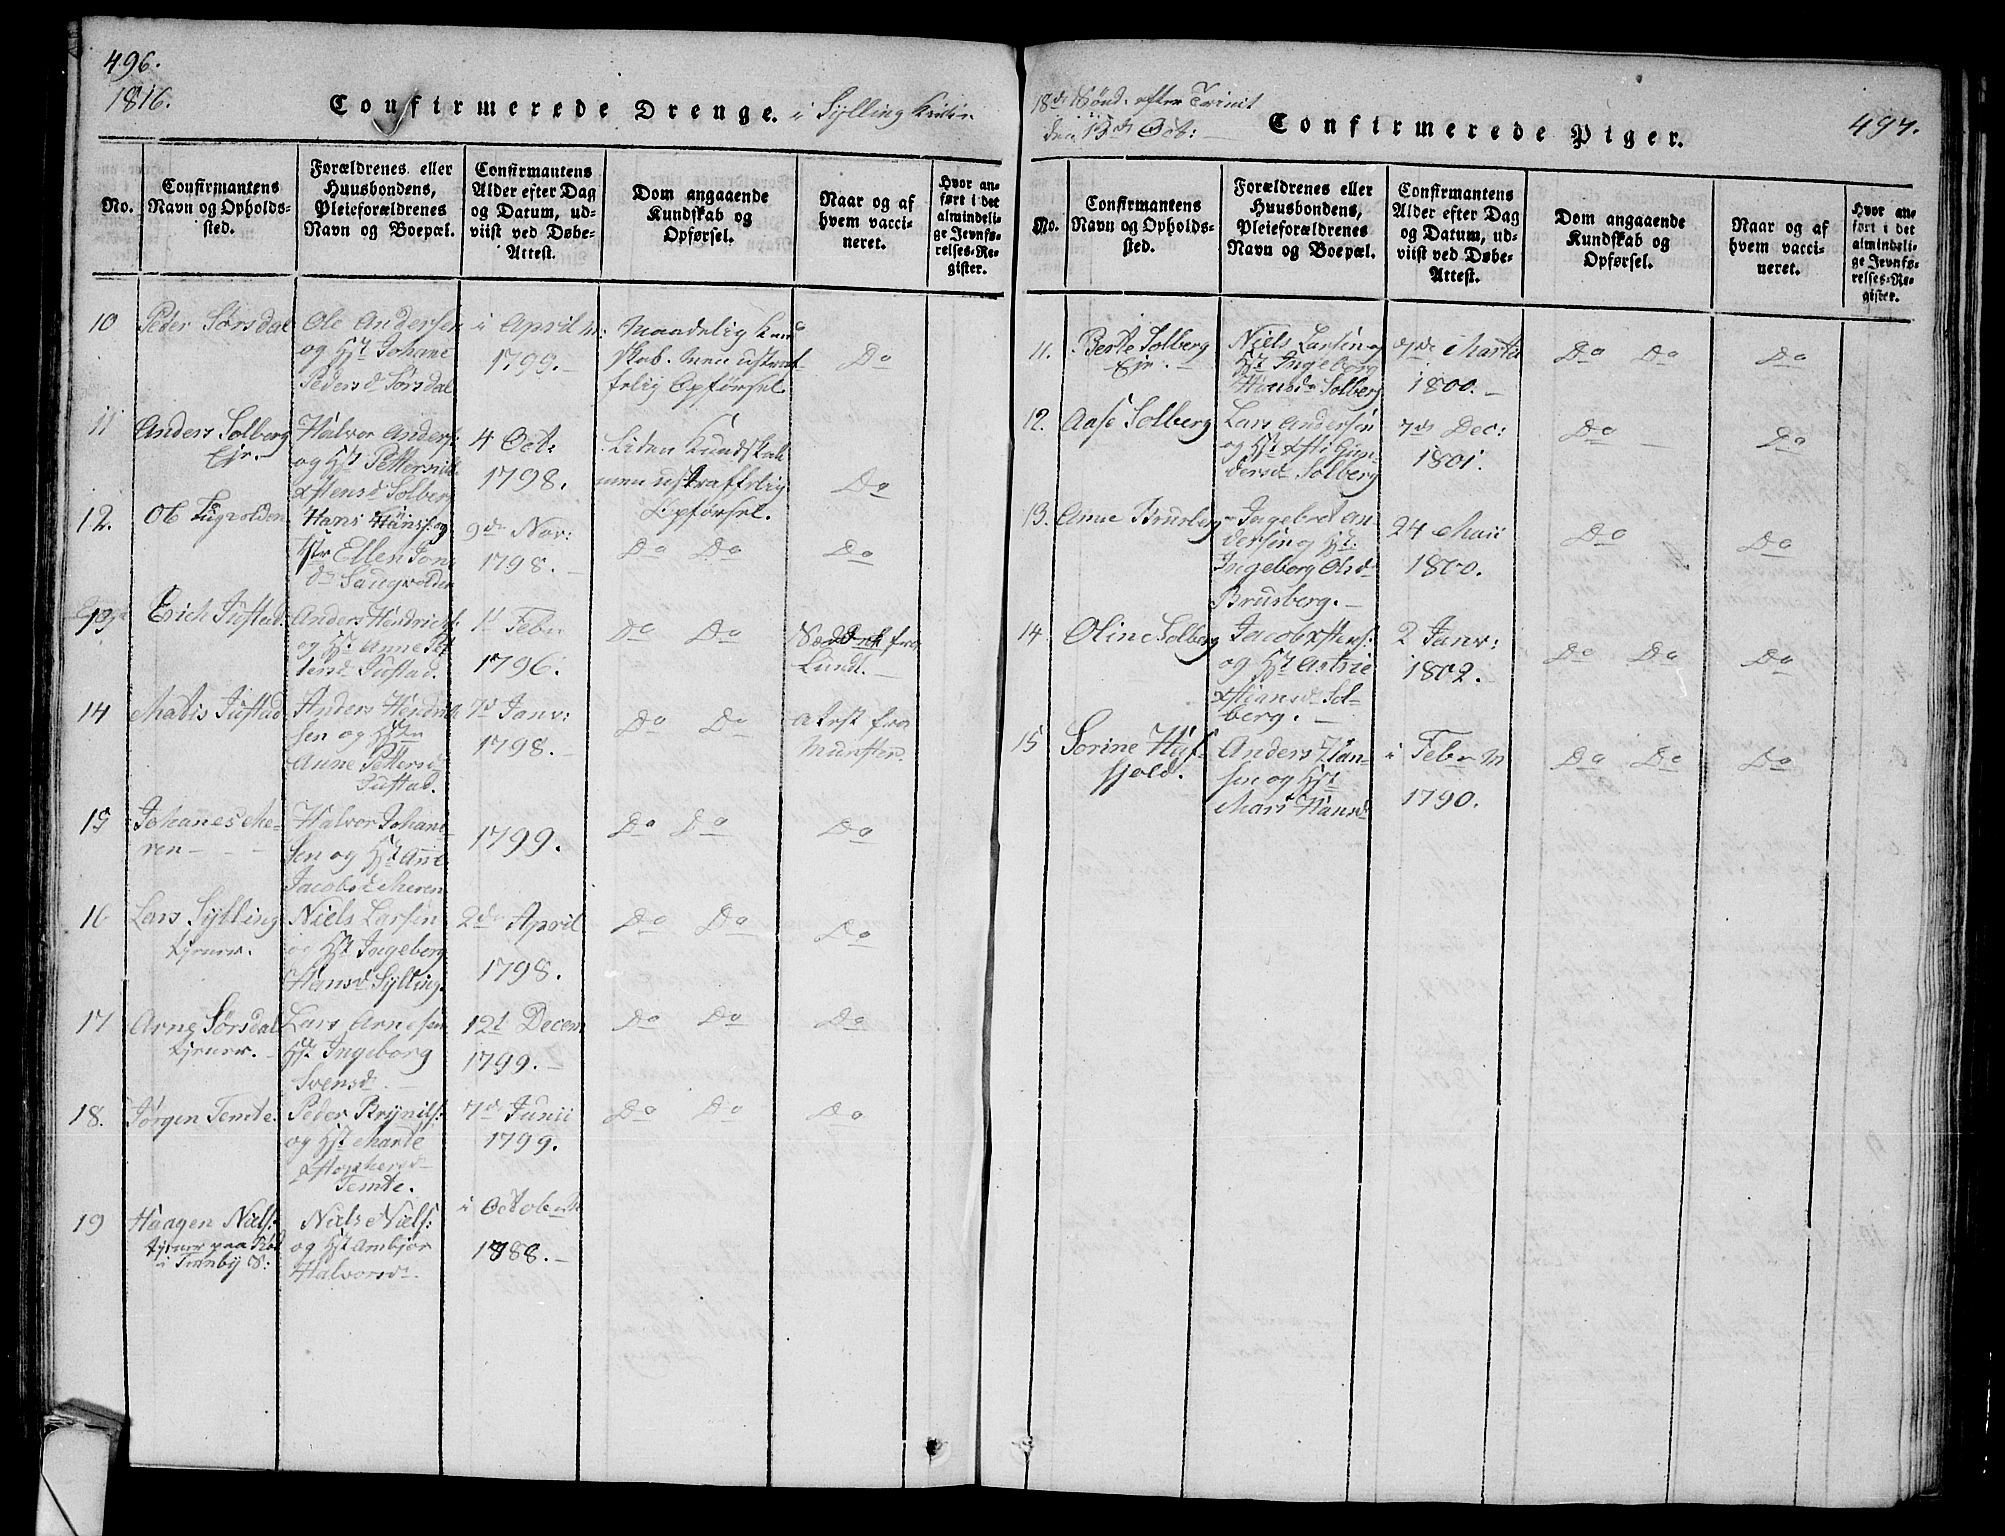 496.
1816.
Confirmerede Drenge. i Sylling Kirke
No.
Confirmantens
Navn og Opholds-
sted.
Forældrenes eller
Huusbondens,
Pleieforældrenes
Navn og Boepæl.
Confirmantens
Alder efter Dag
og Datum, ud-
viist ved Døbe-
Attest.
Dom angaaende
Kundskab og
Opførsel.
Naar og af
hvem vacci-
neret.
Hvor an-
ført i det
almindeli-
ge Jevnfø-
relses-Re-
gister.
10
Peder Sørsdal
Ole Andersen
og Hst Johane
Pedersd Sørsdal
i April M:
1799.
Maadelig Kund
skab. men ustraf-
felig Opførsel.
Do
11
Anders Solberg
Eje.
Halvor Anders:
og Hst Petternil.
Xstensd Solberg
4 Oct:
1798.
Liden Kundskab
men ustraffelig
Opførsel.
Do
12.
Ole
Hans Hans: og
Hst Ellen Jons
d Saugvolden
9de Nov:
1798.
Do Do
Do
13
Erich Tufstad.
Anders Hendrics:
og Hst Anne Pet
tersd Tufstad.
1t Febr
1796.
Do Do
fra
Lund.
14
Matis Tufstad
Anders Hendrik
sen og Hstr
Anne Pettersd
Tufstad.
7d Janv:
1798.
Do Do
Atest fra
15
Johanes Me-
ren
Halvor Johane-
sen og Hst Ane
Jacobsd Meren
1799.
Do Do
Do
16
Lars Sylling
tjener.
Niels Larsen
og Hst Ingeborg
Hansd Sylling.
2de April
1798.
Do Do
Do
17
Arne Sørsdal
tjener.
Lars Arnesen
Hst Ingeborg
Svensd
12t Decem
1799.
Do Do
Do
18.
Jørgen Temte.
Peder Brynils:
og Hst Marte
Xstophersd
Temte.
7de Junii
1799.
Do Do
Do
19
Haagen Niels:
tjener paa
i
Niels Niels:
og Hst Ambjør
Halvorsd.
i October M
1788.
18de Sønd. efter Trinit
den 13de Oct:
Confirmerede Piger.
497.
No.
Confirmantens
Navn og Opholds-
sted.
Forældrenes eller
Huusbondens,
Pleieforældrenes
Navn og Boepæl.
Confirmantens
Alder efter Dag
og Datum, ud-
viist ved Døbe-
Attest.
Dom angaaende
Kundskab og
Opførsel.
Naar og af
hvem vacci-
neret.
Hvor an-
ført i det
almindeli-
ge Jevnfø-
relses-Re-
gister.
11.
Berte Solberg
Eje.
Niels Larsen og
Hst Ingeborg
Hansd Solberg
7de Martii
1800.
Do Do
Do
12.
Aase Solberg
Lars Andersen
og Hst Xsti Gun-
dersd Solberg
7de Dec:
1801.
Do
Do
13.
Anne Brusberg
Ingebret An-
dersen og Hst:
Ingeborg Olsd
Brusberg.
24 Maii
1800.
Do
Do
14.
Oline Solberg
Jacob Xstens:
og Hst Astrie
Xstiansd Sol-
berg.
2 Janv:
1802.
Do Do
Do
15
Sorine Høf-
fjeld.
Anders Han-
sen og Hst
Mari Hansd
i Febr M
1790.
Do Do
Do